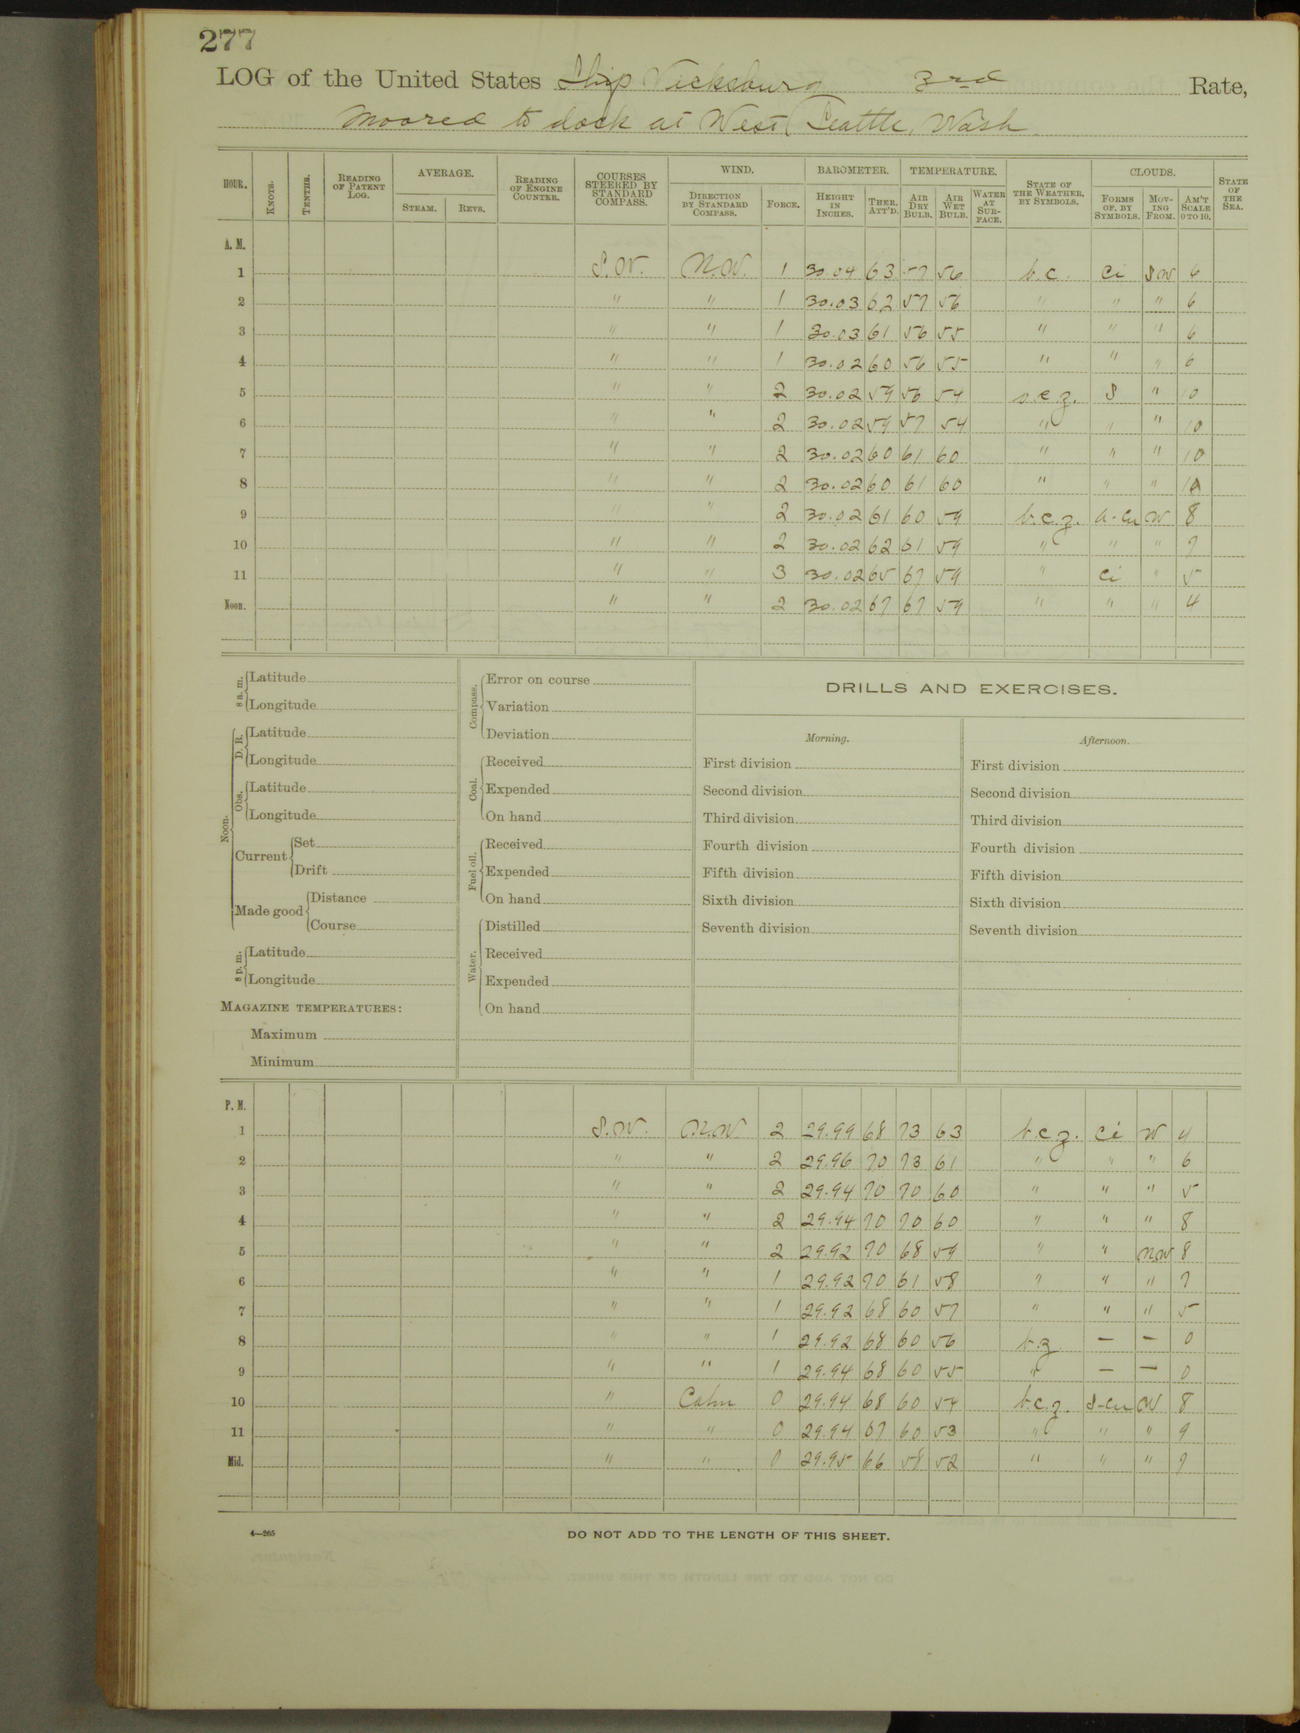 277
LOG of the United States Ship Vicksburg 3rd Rate,
Moored to dock at West Seattle, Wash.
HOUR. KNOTS. TENTHS. READING OF PATENT LOG. AVERAGE. STEAM. REVS. READING OF ENGINE COUNTER. COURSES STEERED BY STANDARD COMPASS. WIND. DIRECTION BY STANDARD COMPASS. FORCE. BAROMETER. HEIGHT IN INCHES. THER. ATT'D. TEMPERATURE. AIR DRY BULB. AIR WET BULB. WATER AT SURFACE. STATE OF THE WEATHER, BY SYMBOLS. CLOUDS. FORMS OF, BY SYMBOLS. MOVING FROM. AM'T SCALE 0 TO 10. STATE OF THE SEA.
A. M.
1 S.W. N.W. 1 30.04 63 57 56 b.c. Ci SW 6
2 " " 1 30.03 62 57 56 " " " 6
3 " " 1 30.03 61 56 55 " " " 6
4 " " 1 30.02 60 56 55 " " " 6
5 " " 2 30.02 59 56 54 o.c.z. S " 10
6 " " 2 30.02 59 57 54 " " " 10
7 " " 2 30.02 60 61 60 " " " 10
8 " " 2 30.02 60 61 60 " " " 10
9 " " 2 30.02 61 60 59 b.c.z. A-Cu W 8
10 " " 2 30.02 62 61 59 " " " 7
11 " " 3 30.02 65 67 59 " Ci " 5
Noon. " " 2 30.02 67 67 59 " " " 4
8 a. m. Latitude
Longitude
Noon. D. R. Latitude
Longitude
Obs. Latitude
Longitude
Current Set
Drift
Made good Distance
Course
8 p. m. Latitude
Longitude
MAGAZINE TEMPERATURES:
Maximum
Minimum
Compass. Error on course
Variation
Deviation
Coal. Received
Expended
On hand
Fuel oil. Received
Expended
On hand
Water. Distilled
Received
Expended
On hand
DRILLS AND EXERCISES.
Morning.
First division
Second division
Third division
Fourth division
Fifth division
Sixth division
Seventh division
Afternoon.
First division
Second division
Third division
Fourth division
Fifth division
Sixth division
Seventh division
P. M.
1 S.W. N.W. 2 29.99 68 73 63 b.c.z. Ci W 4
2 " " 2 29.96 70 73 61 " " " 6
3 " " 2 29.94 70 70 60 " " " 5
4 " " 2 29.94 70 70 60 " " " 8
5 " " 2 29.92 70 68 59 " " NW 8
6 " " 1 29.92 70 61 58 " " " 7
7 " " 1 29.92 68 60 57 " " " 5
8 " " 1 29.92 68 60 56 b.z. — — 0
9 " " 1 29.94 68 60 55 " — — 0
10 " Calm 0 29.94 68 60 54 b.c.z. S-Cu W 8
11 " " 0 29.94 67 60 53 " " " 9
Mid. " " 0 29.95 66 58 52 " " " 7
4—265
DO NOT ADD TO THE LENGTH OF THIS SHEET.